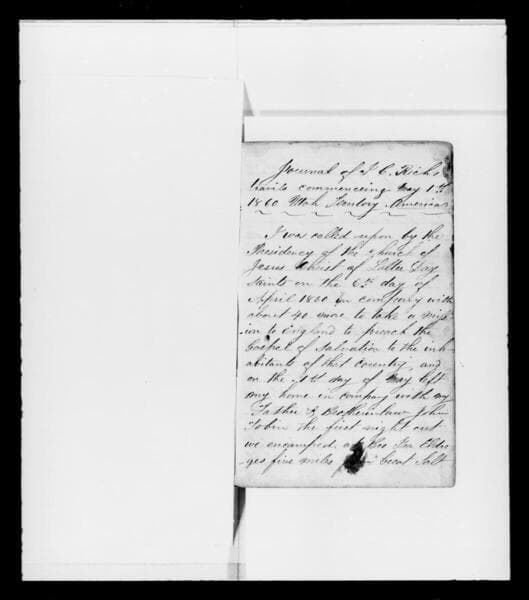 Journal of J C. Rich's
travils commencing May 1st
1860 Utah Teretory America
I was called upon by the
Presidency of the Church of
Jesus Christ of Latter Day
Saints on the 6th day of
April 1860 in company with
about 40 more to take a miss
ion to England to preach the
Gospel of Salvation to the inh-
abitants of that country, and
on the 1st day of May left
my home in company with my
Father & Brotherinlaw John
Tobin the first night out
we encamped at Bro Ira Eldre
ges five miles Great Salt